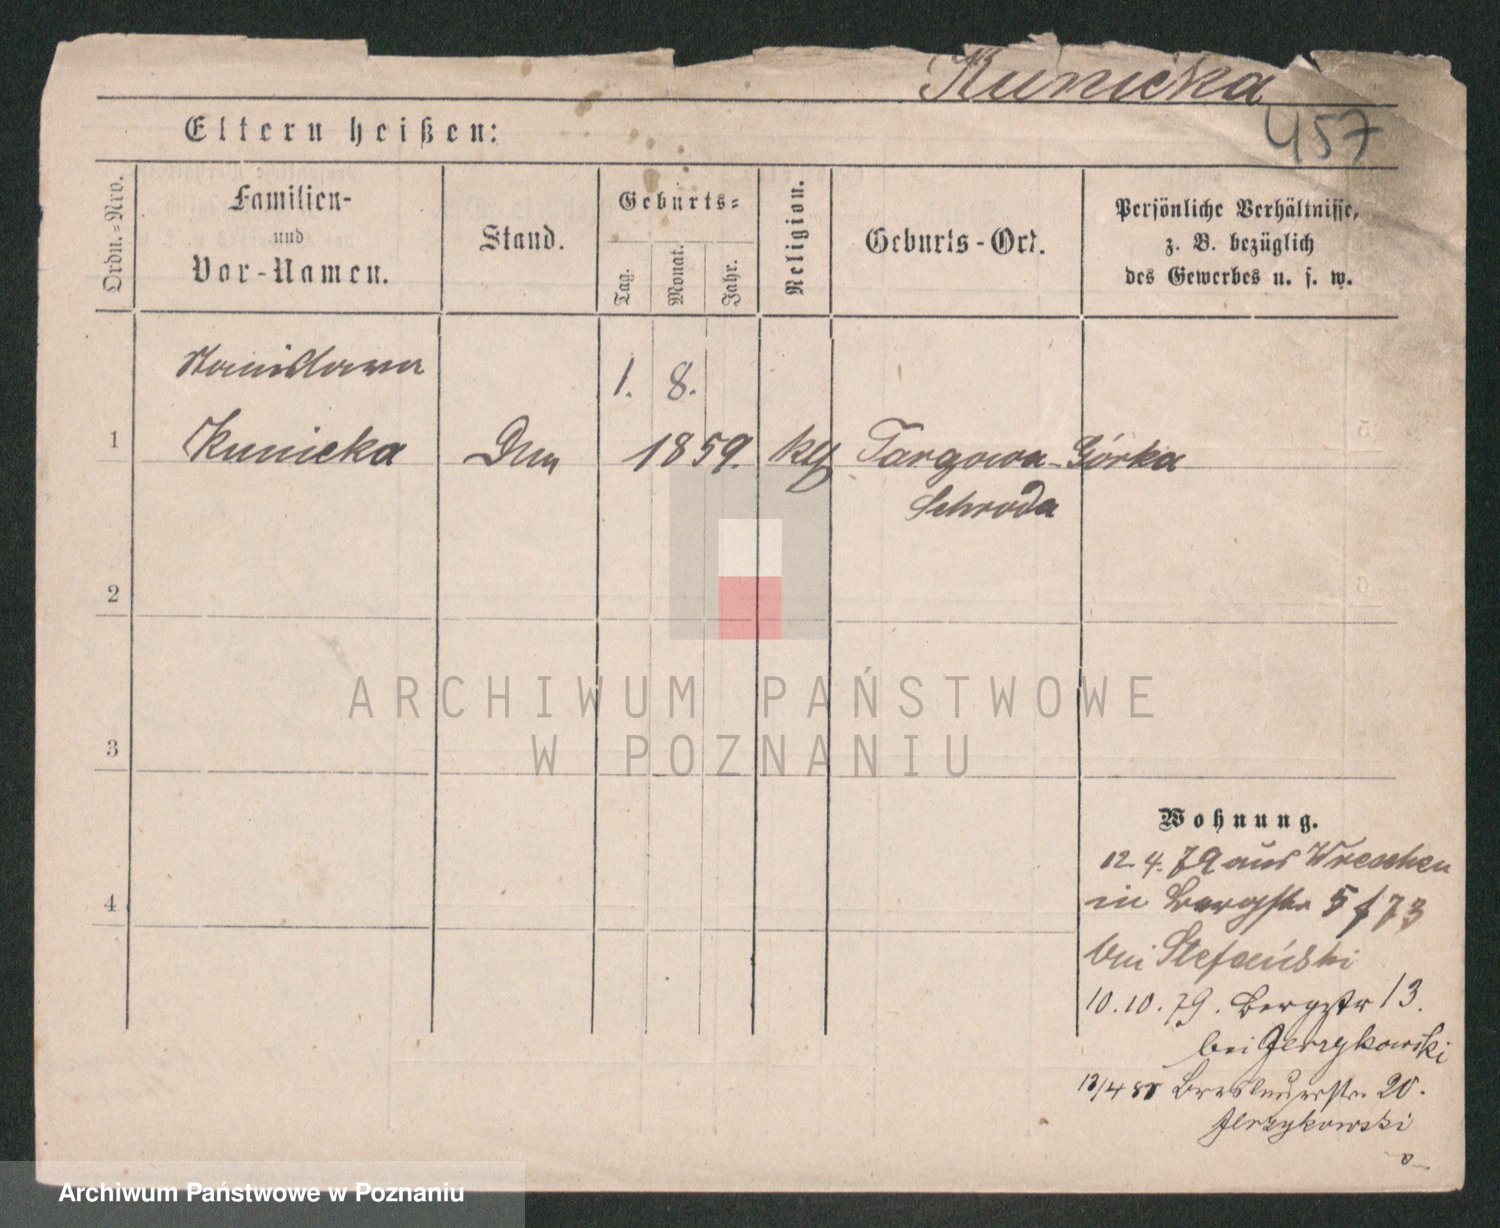 Kunicka
457
Eltern heißen:
Ordn.-Nro.
Familien-
und
Vor-Namen.
Stand.
Geburts-
Tag.
Monat.
Jahr.
Religion.
Geburts-Ort.
Persönliche Verhältnisse,
z. B. bezüglich
des Gewerbes u. s. w.
Stanislawa
1. 8.
1 Kunicka 1859. Targowa-Górka
Schroda
2
3
4
ARCHIWUM PAŃSTWOWE
W POZNANIU
Wohnung.
12. 4. 79 aus Wreschen
in Bergstr 5 f 73
bei Stefański
10. 10. 79. Bergstr 13.
bei Jerzykowski
13/4 Breslauerstr. 20.
Jerzykowski
Archiwum Państwowe w Poznaniu